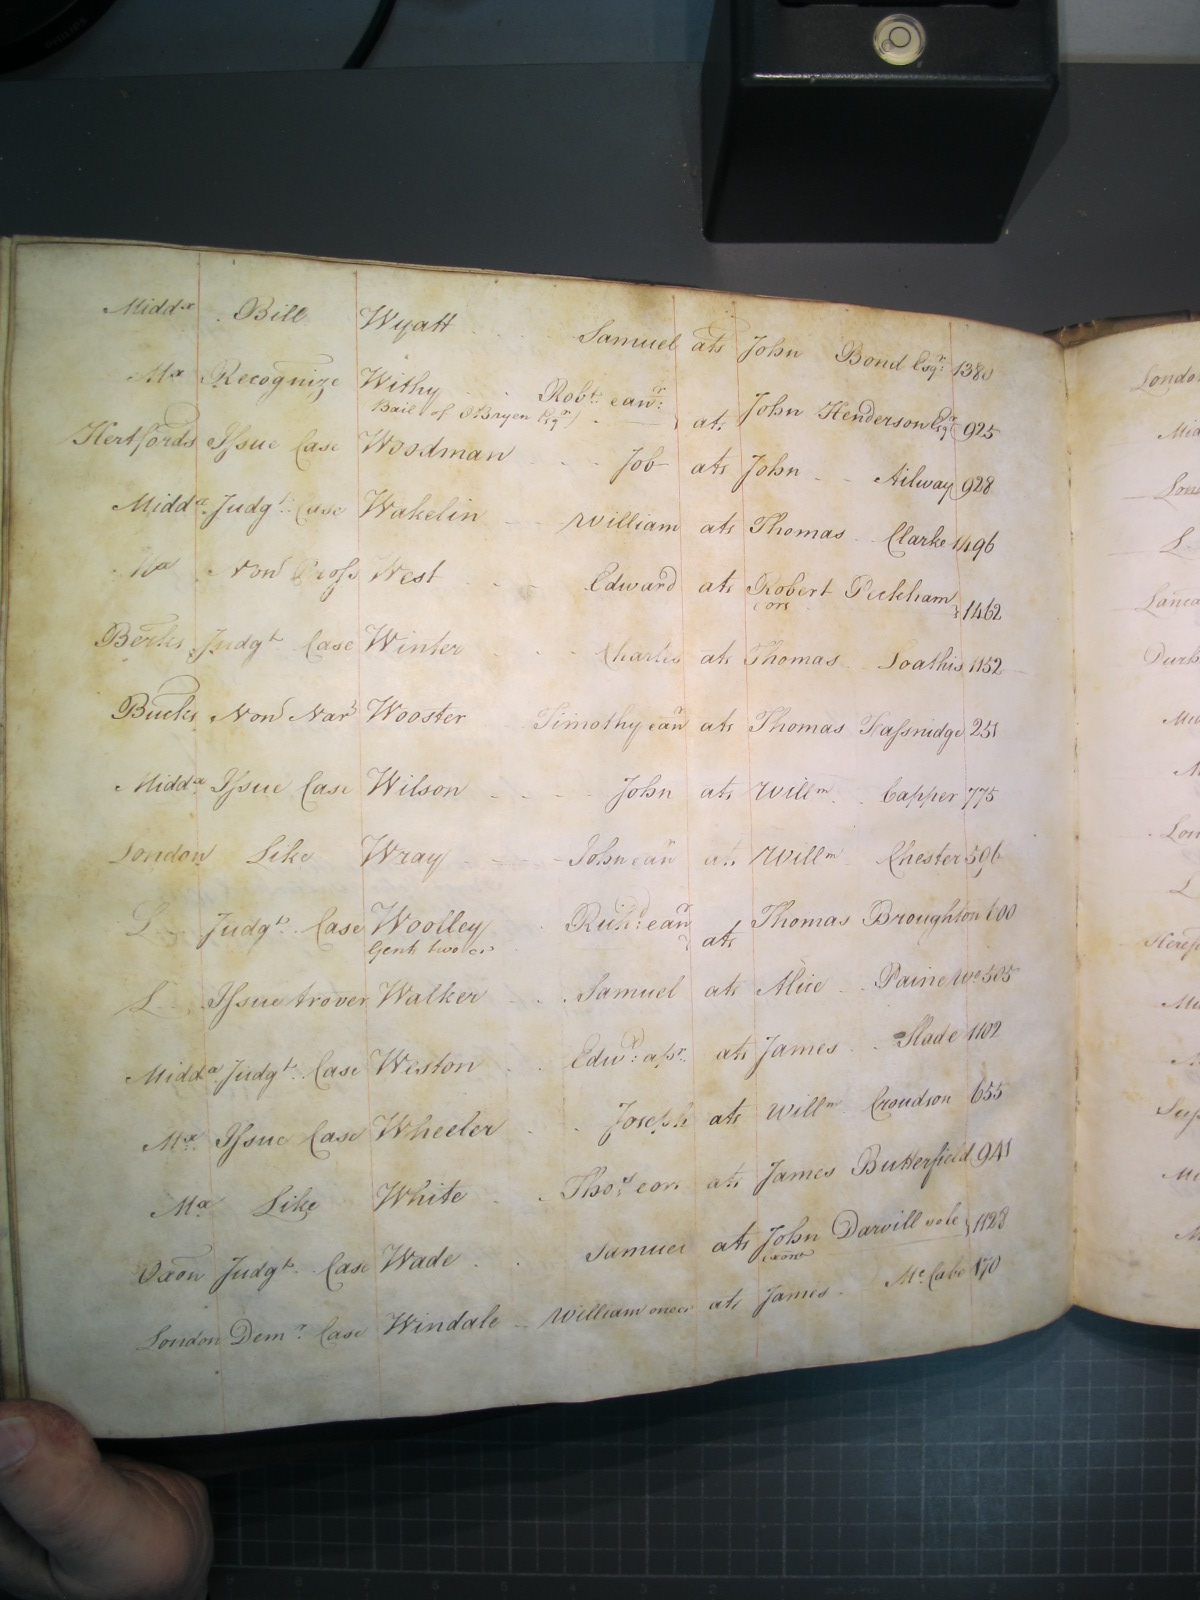 Midd.x Bill Wyatt Samuel ats John Bond Esq.r 1380
Mx Recognize Withy Rob.t ean.r at. John Henderson Esq.r 925
Bail of OBryen Esq.r
Hertfords Issue Case Woodman Job ats John Ailway 928
Midd.x Judg.t Case Wakelin William ats Thomas Clarke 1496
Mx Non Pross West Edward ats Robert Peckham 1462
Berks Judg.t Case Winter Charles ats Thomas Loathis 1152
Bucks Non Nar Wooster Timothy ean.r ats Thomas Fassnidge 251
Midd.x Issue Case Wilson John ats Will.m Capper 775
London Like Wray John ean.r ats Will.m Chester 596
L Judg.t Case Woolley Rich.d ean.r ats Thomas Broughton 600
Gent two &c
L Issue trover Walker Samuel ats Alice Paine Wo 505
Midd.x Judg.t Case Weston Edw.d ats James Slade 1102
Mx Issue Case Wheeler Joseph ats Will.m Croudson 655
Mx Like White Tho.s ats James Butterfield 941
Oxon Judg.t Case Wade Samuel ats John Darvill 1128
London Dem.r Case Windale William ats James Mc.Cabe 170